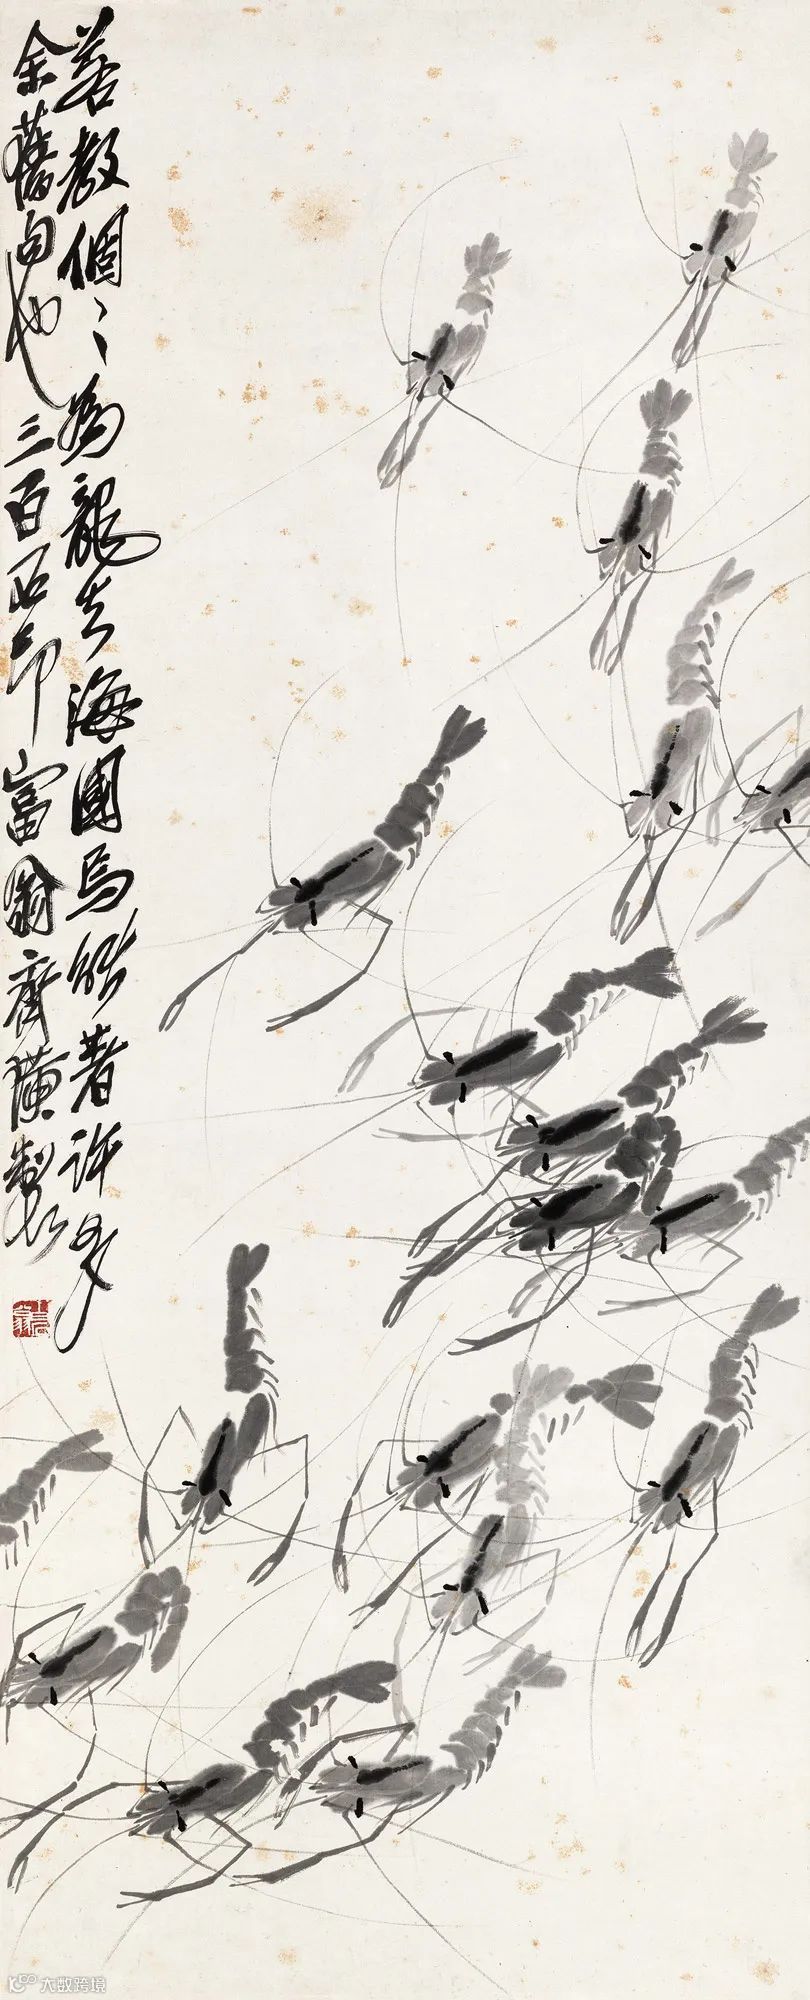 若教個〻為龍去海國焉能著許多
余舊句也三百石印富翁齊璜製
大数跨境